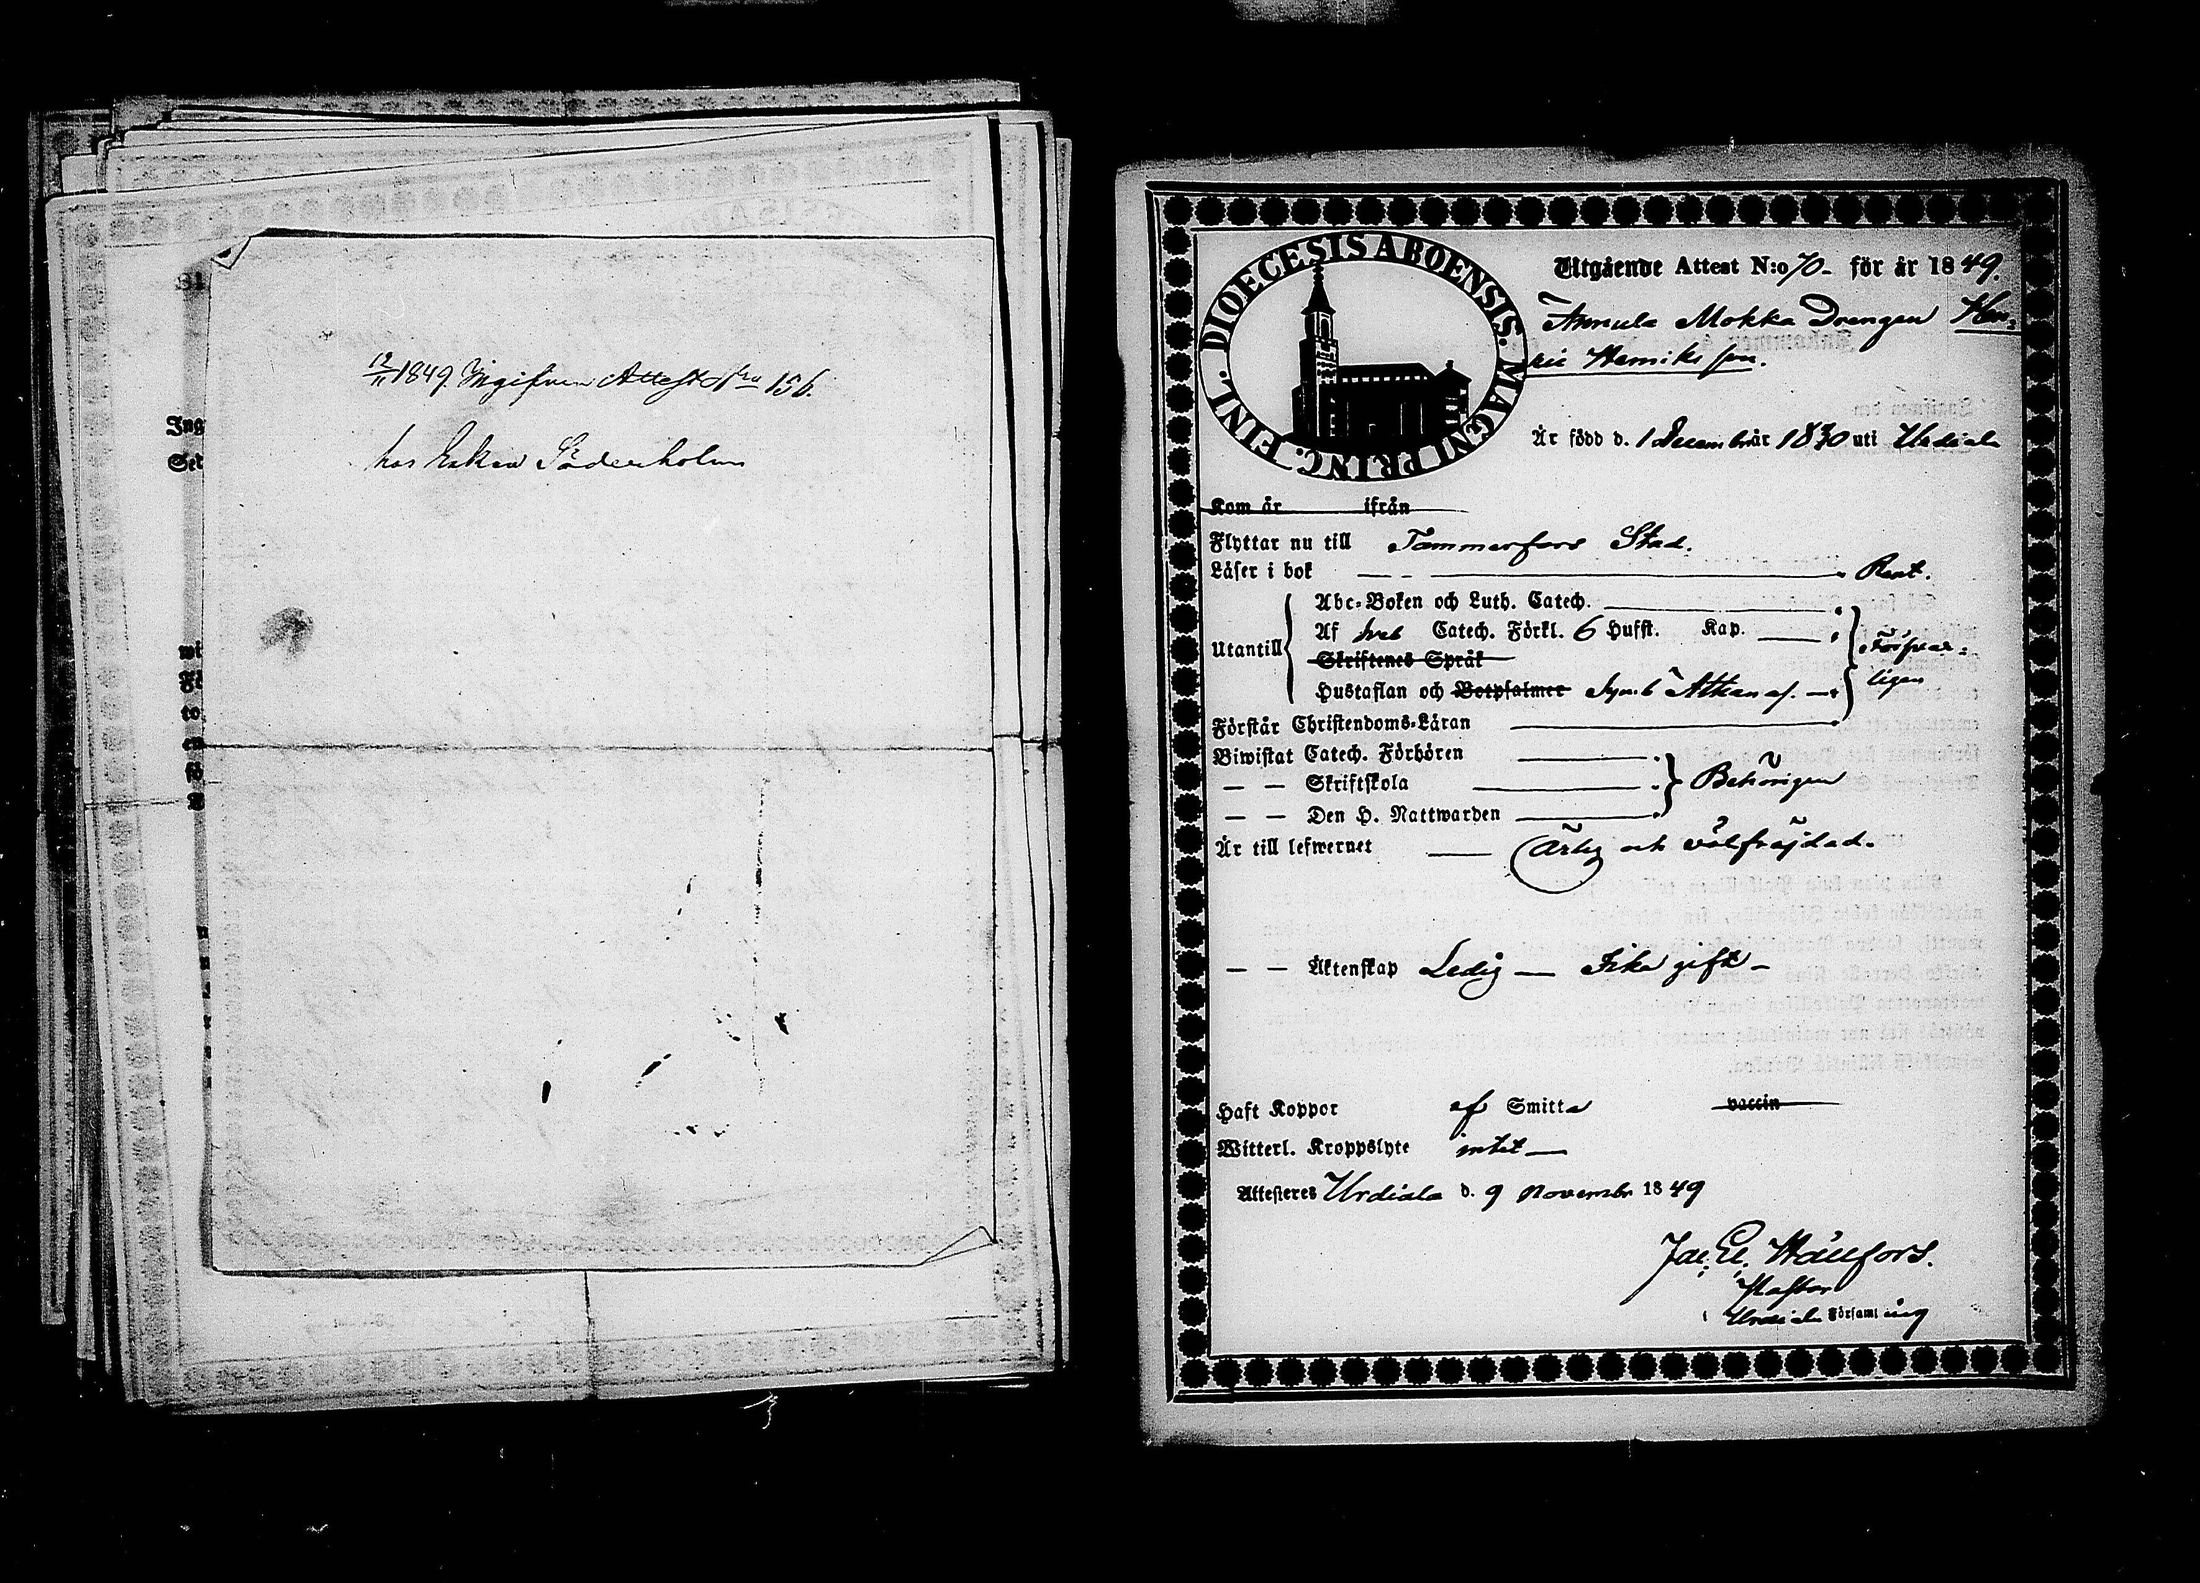 12/11 1849 Ingifven Attest N:ro 156.
hos Enkan Söderholm
DIOECESIS ABOENSIS. MAGNI PRINC. FINL.
Utgående Attest N:o 70 för år 1849.
Annula Mokka Drengen Hen=
ric Henriksson.
Är född d. 1 December år 1830 uti Urdiala
Kom år ifrån
Flyttar nu till Tammerfors Stad.
Läser i bok — — Rent.
Abc-Boken och Luth. Catech.
Utantill
Af Catech. Förkl. 6 Hufst. Kap. — Försvar=
Skriftenes Språk
Hustaflan och Botpsalmer Symb Athanas. — ligen
Förstår Christendoms-Läran
Biwistat Catech. Förhören
— — Skriftskola — Behörigen
— — Den H. Nattwarden
Är till lefwernet — Ärlig och välfräjdad.
— — Äktenskap Ledig — Icke gift —
Haft Koppor af Smitta vaccin
Witterl. Kroppslyte intet —
Attesteres Urdiala d. 9 Novembr 1849
Jac. El. Hällfors.
Pastor
i Urdiala Församling